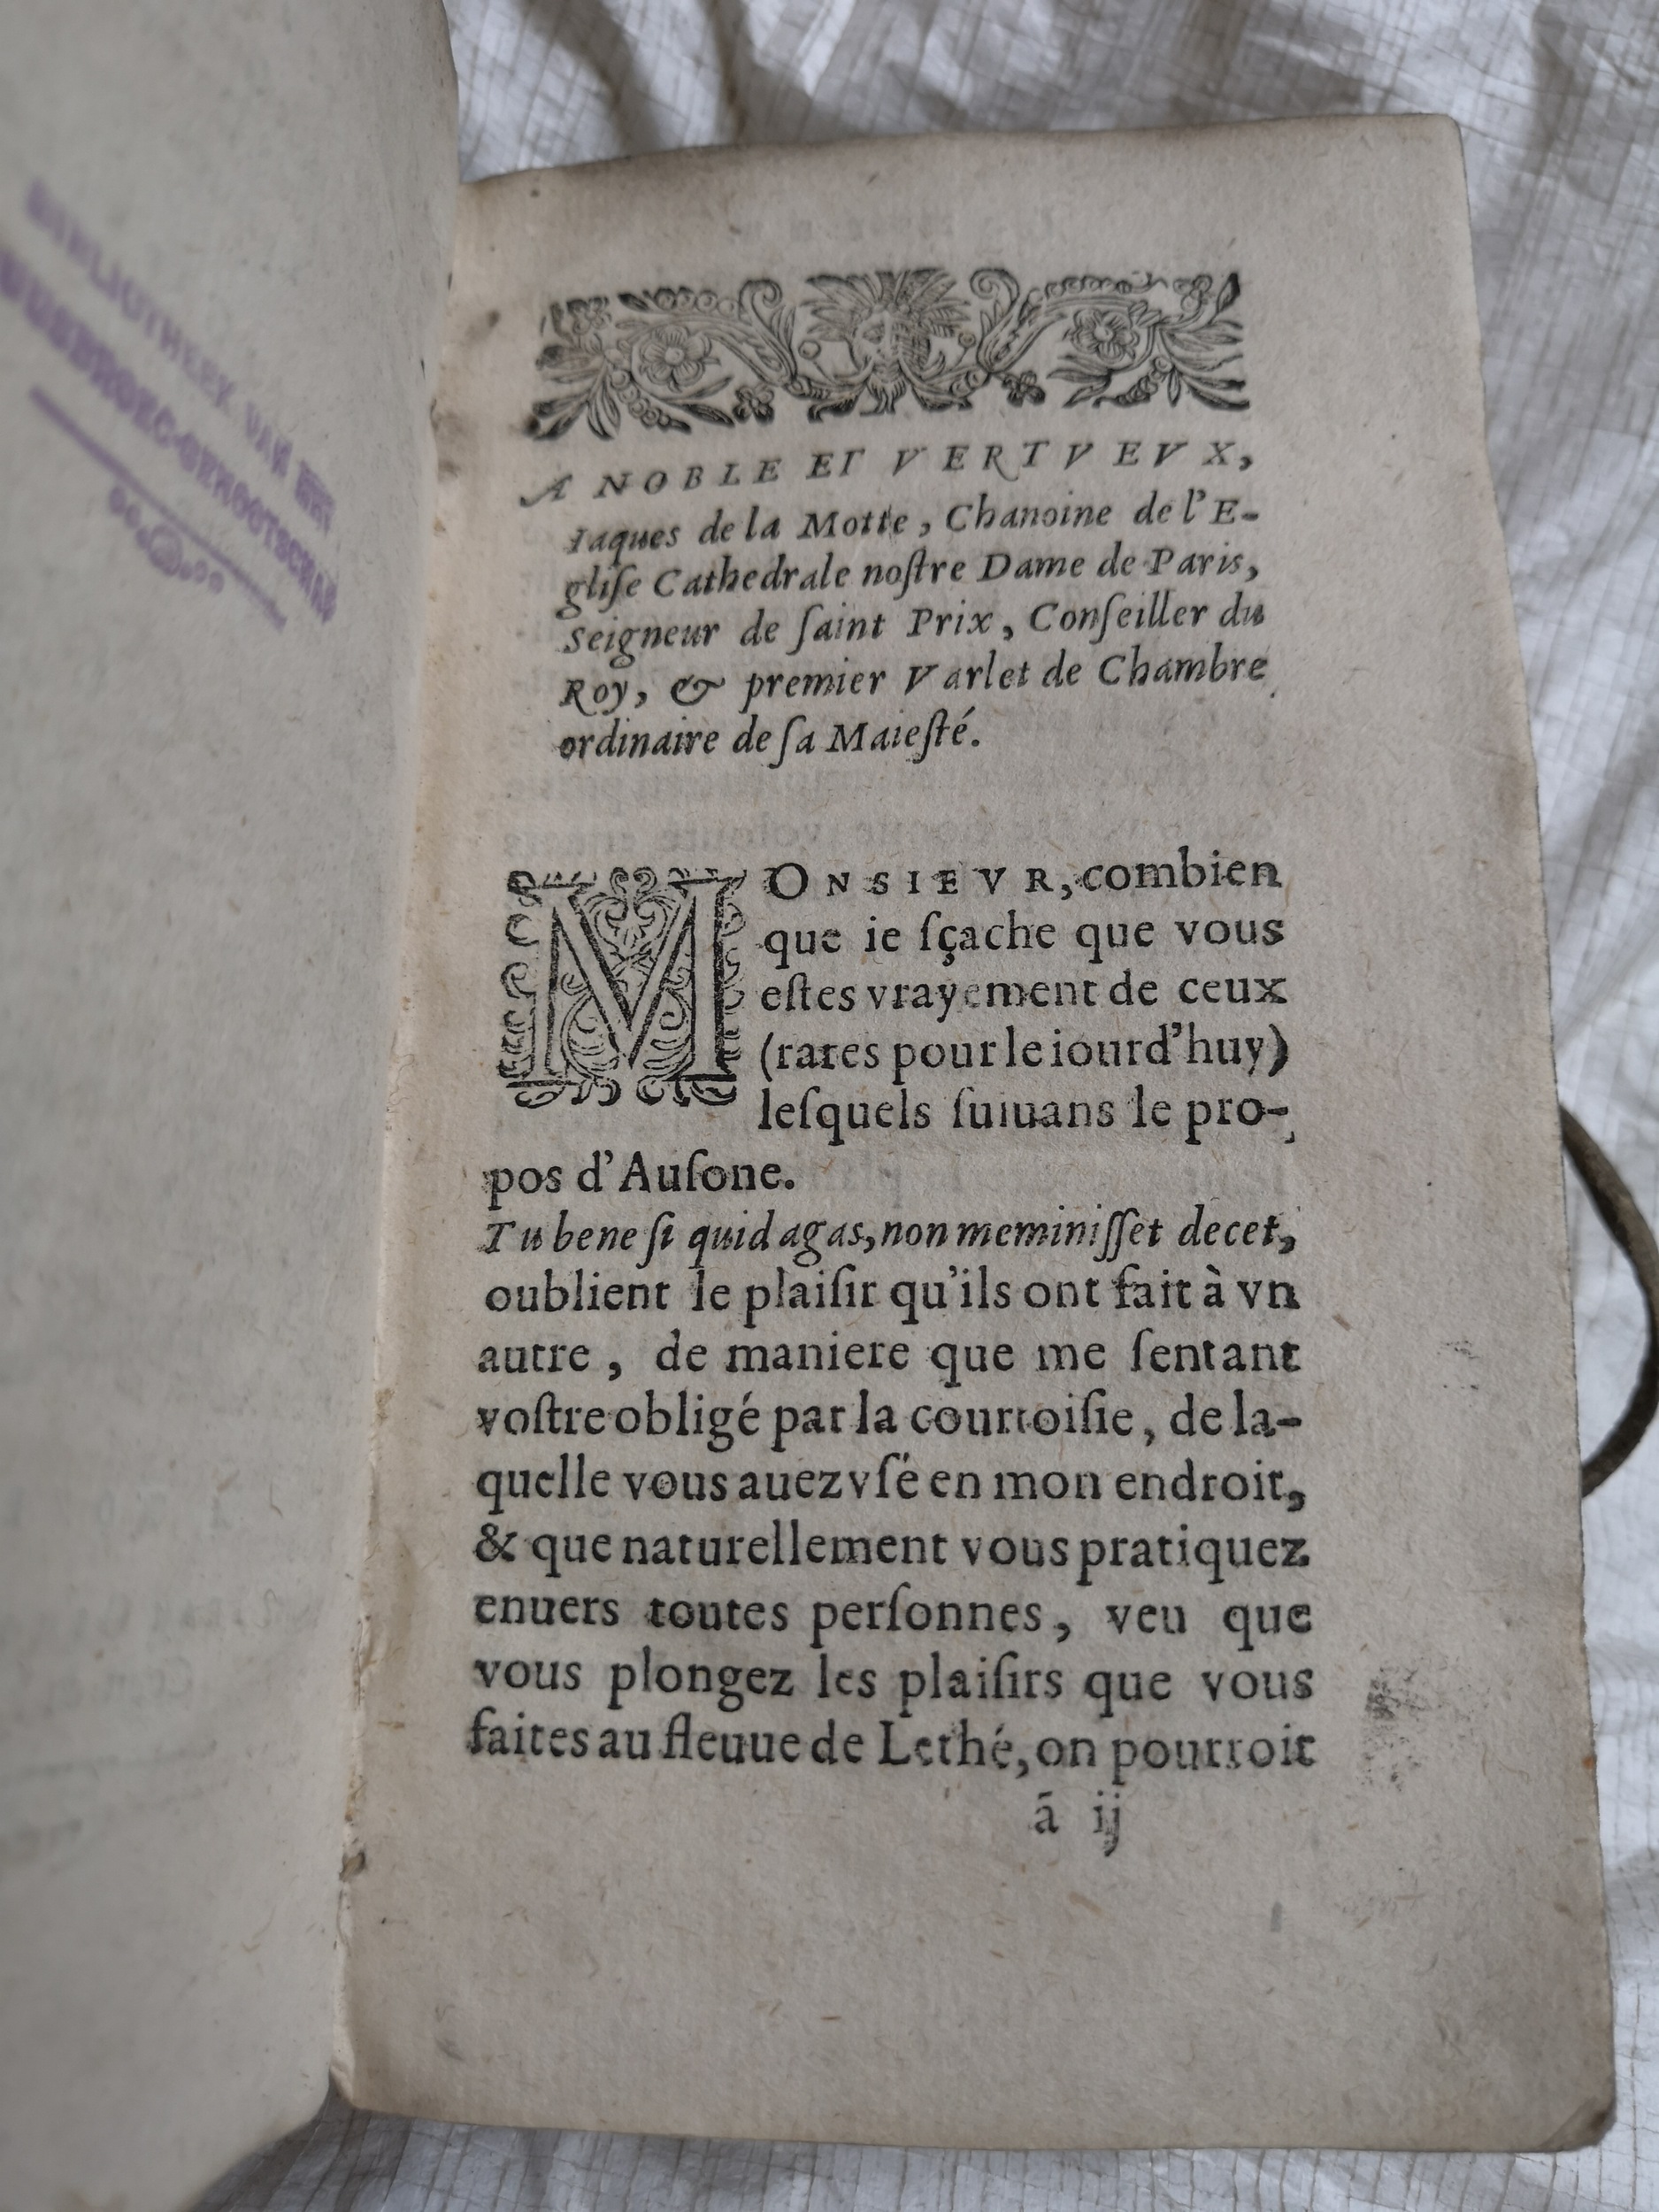 BIBLIOTHEEK VAN HET
A NOBLE ET VERTVEVX,
Iaques de la Motte, Chanoine de l'E-
gliſe Cathedrale noſtre Dame de Paris,
Seigneur de ſaint Prix, Conſeiller du
Roy, & premier Varlet de Chambre
ordinaire de ſa Maieſté.
MONSIEVR, combien
que ie ſçache que vous
eſtes vrayement de ceux
(rares pour le iourd'huy)
leſquels ſuiuans le pro-
pos d'Auſone.
Tu bene ſi quid agas, non meminiſſet decet,
oublient le plaiſir qu'ils ont fait à vn
autre, de maniere que me ſentant
voſtre obligé par la courtoiſie, de la-
quelle vous auez vſé en mon endroit,
& que naturellement vous pratiquez
enuers toutes perſonnes, veu que
vous plongez les plaiſirs que vous
faites au fleuue de Lethé, on pourroit
ā ij